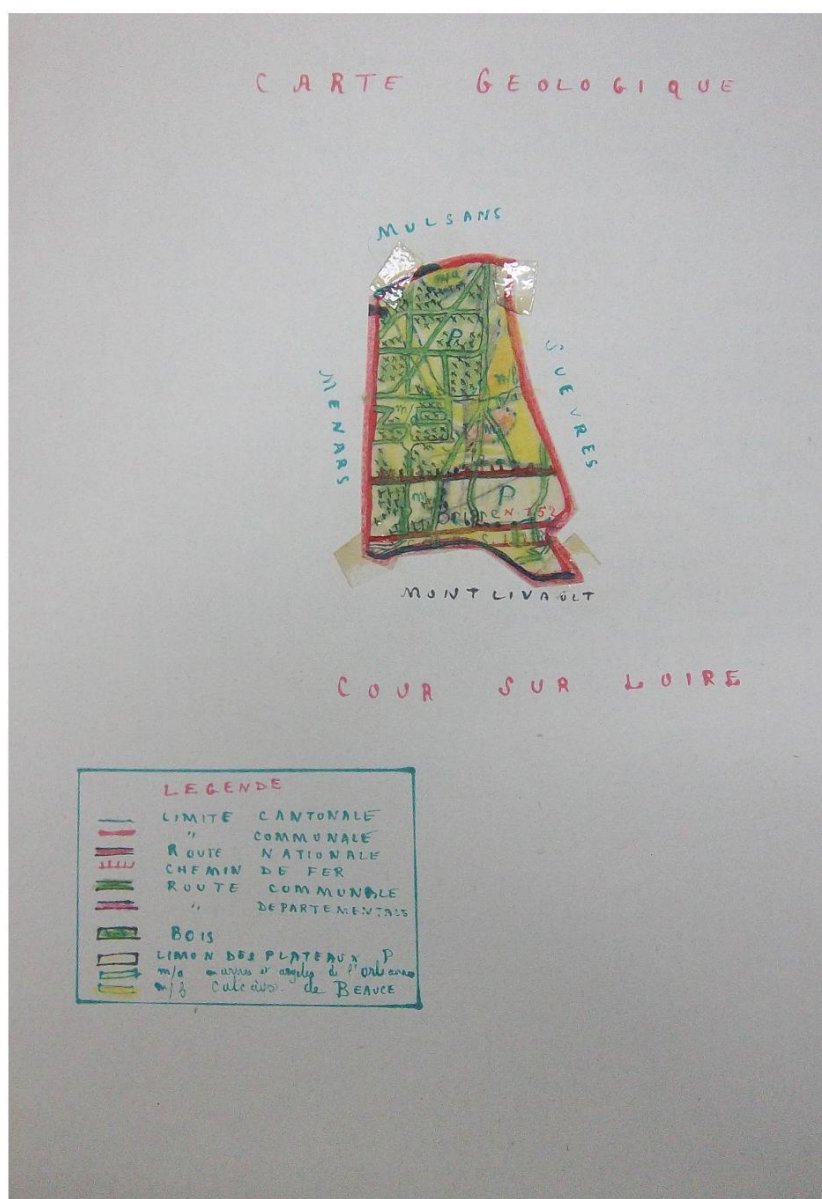 CARTE GEOLOGIQUE
MULSANS
MENARS
SUEVRES
P
P
m
N.152
MONTLIVAULT
COUR SUR LOIRE
LEGENDE
LIMITE CANTONALE
" COMMUNALE
ROUTE NATIONALE
CHEMIN DE FER
ROUTE COMMUNALE
" DEPARTEMENTALE
BOIS
LIMON DES PLATEAUX P
m/a marnes et argiles de l'Orléanais
de BEAUCE